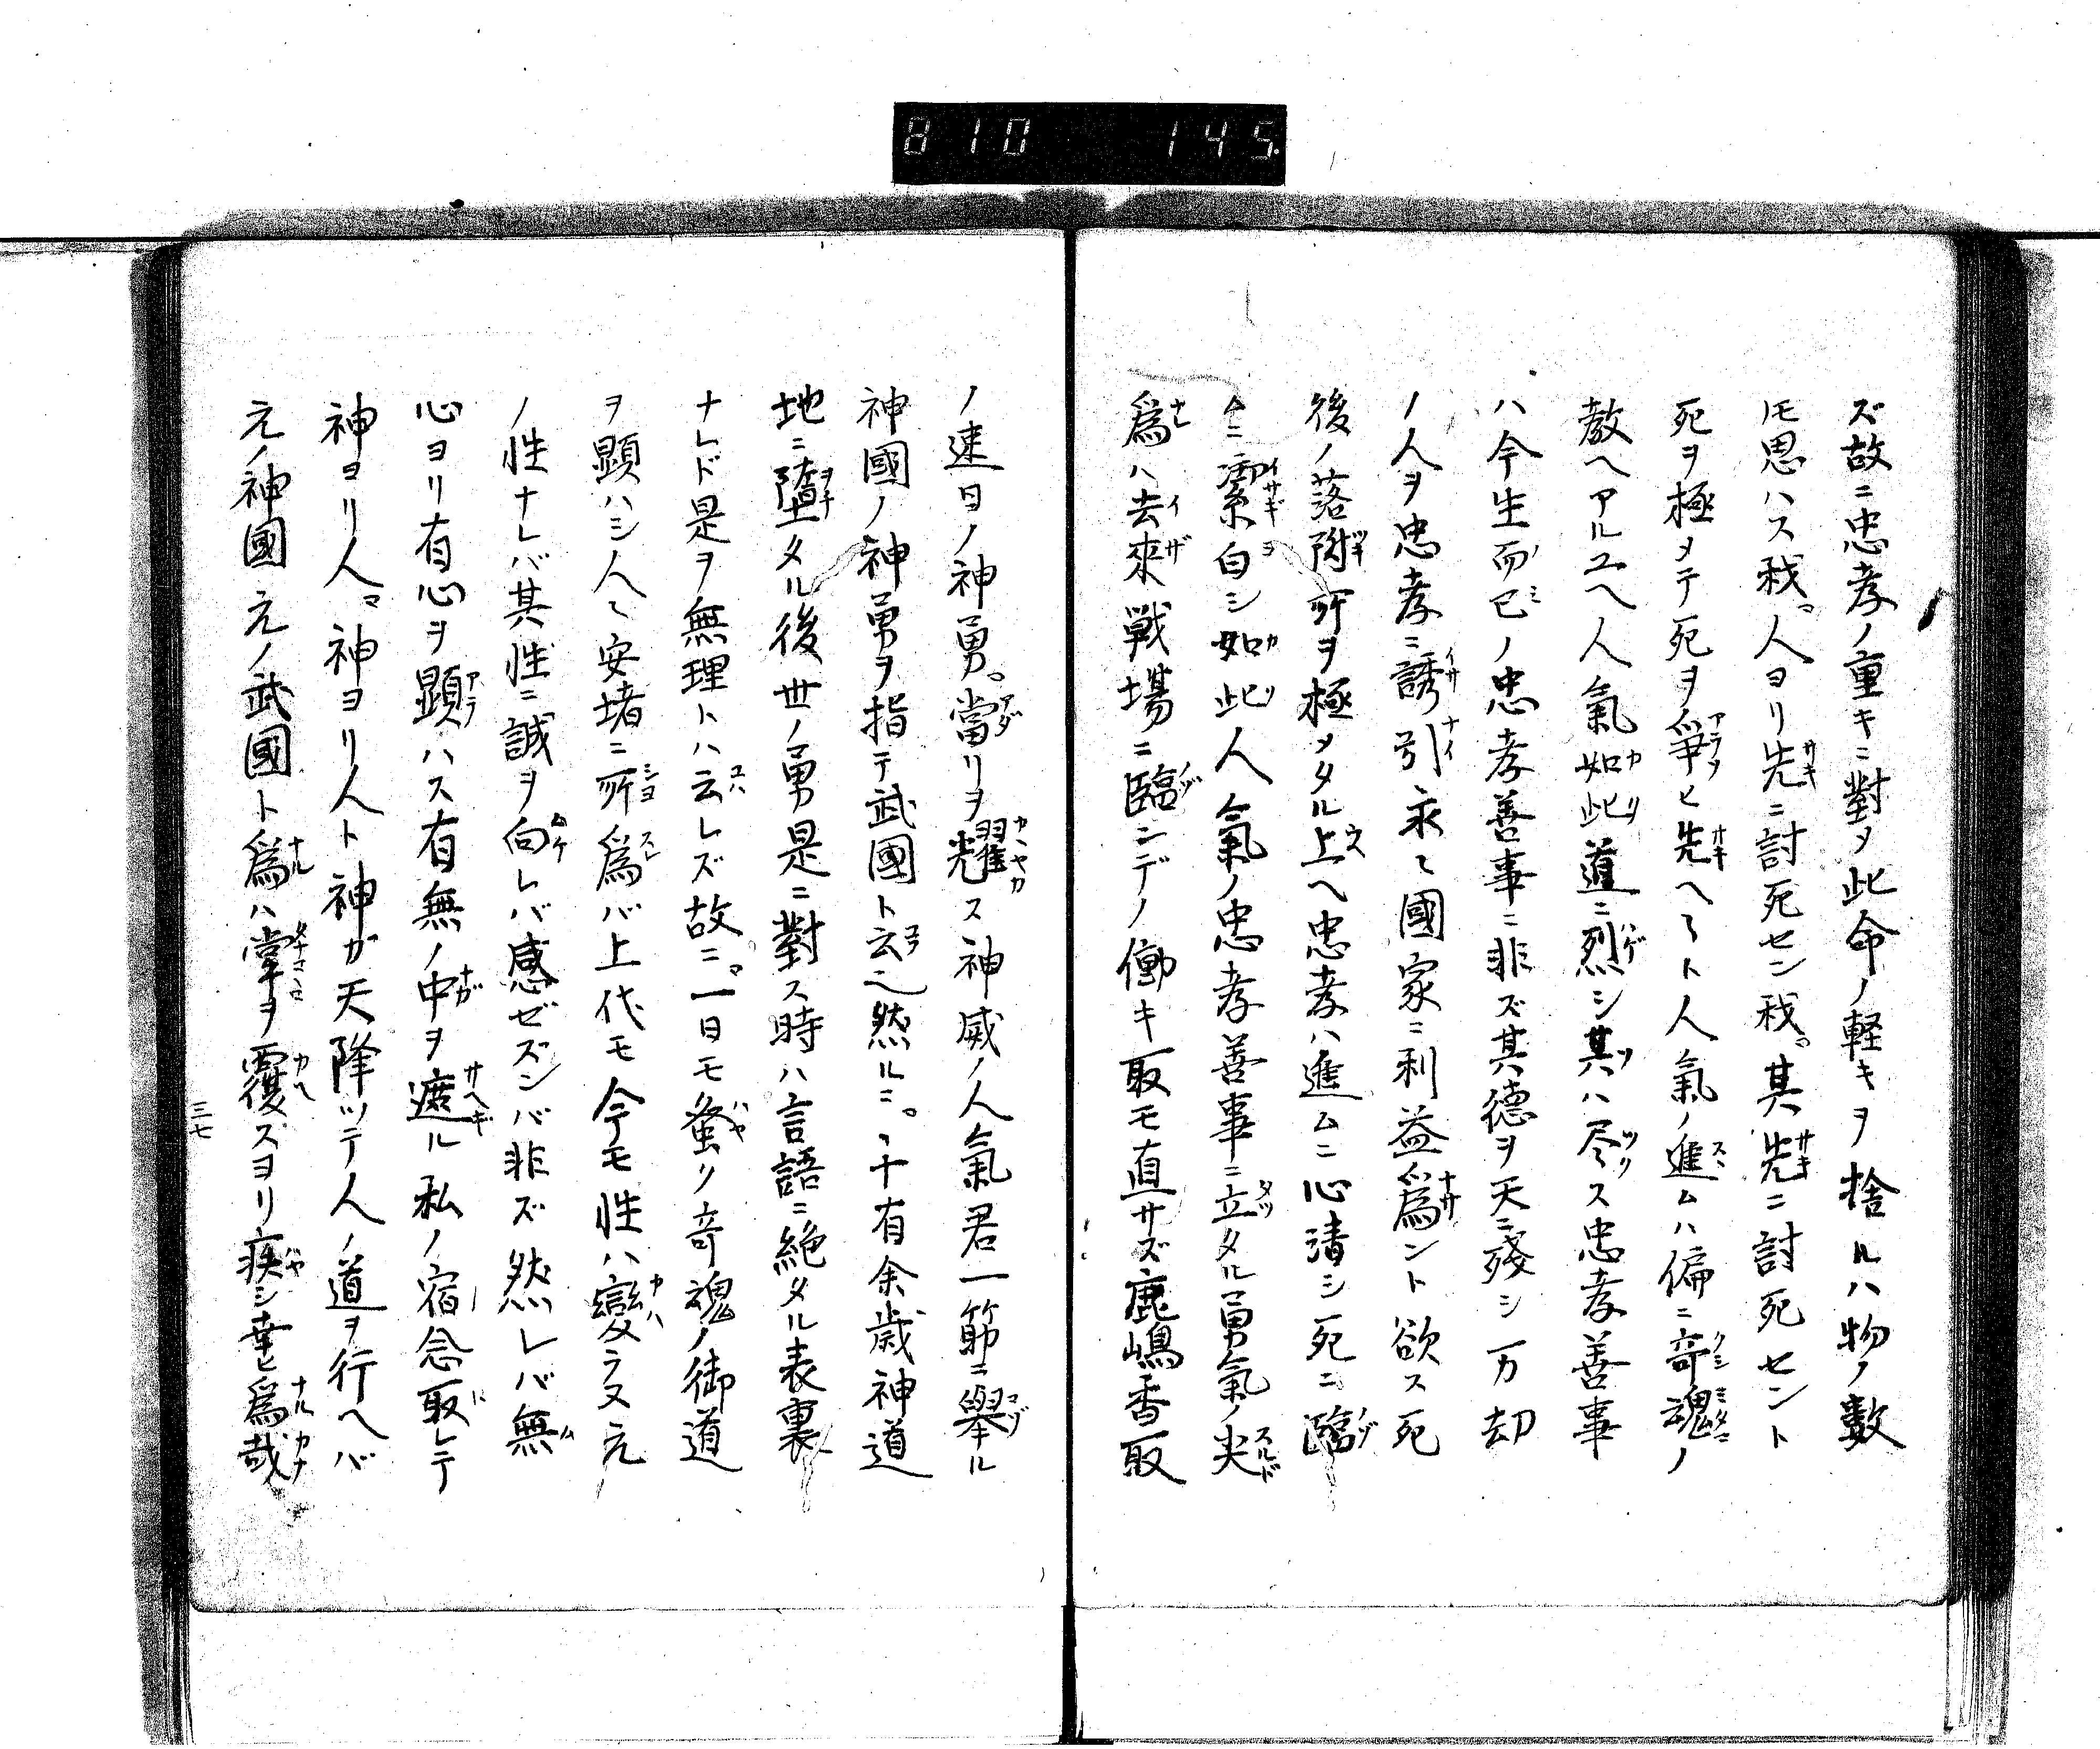 810 145.
ズ故ニ忠孝ノ重キニ對メ此命ノ軽キヲ捨ルハ物ノ數
𪜈思ハス我。人ヨリ先ニ討死セン我。其先ニ討死セント
死ヲ極メテ死ヲ爭ヒ先ヘ〳〵ト人氣ノ進ムハ偏ニ竒魂ノ
教ヘアルユヘ人氣如此道ニ烈シ其ハ尽ス忠孝善事
ハ今生而已ノ忠孝善事ニ非ズ其德ヲ天ニ殘シ一万却
ノ人ヲ忠孝ニ誘引永ク國家ニ利益爲ント欲ス死
後ノ落附所ヲ極メタル上ヘ忠孝ハ進ムニ心清シ死ニ臨
ムニ潔白シ如此人氣ノ忠孝善事ニ立タル勇氣ノ尖
爲ハ去來戰場ニ臨ンデノ働キ取モ直サズ鹿嶋香取
ノ速日ノ神勇。當リヲ耀ス神威ノ人氣君一節ニ擧ル
神國ノ神勇ヲ指テ武國ト云之然ルニ。千有余歳神道
地ニ墮タル後世ノ勇是ニ對ス時ハ言語ニ絶タル表裏
ナレド是ヲ無理トハ云レズ故ニ。一日モ蚤ク竒魂ノ御道
ヲ顯ハシ人〻安堵ニ所爲バ上代モ今モ性ハ變ラヌ元
ノ性ナレバ其性ニ誠ヲ向レバ感ゼズンバ非ズ然レバ無
心ヨリ有心ヲ顯ハス有無ノ中ヲ遮ル私ノ宿念取レテ
神ヨリ人。神ヨリ人ト神ガ天降ッテ人ノ道ヲ行ヘバ
元ノ神國元ノ武國ト爲ハ掌ヲ覆スヨリ疾シ幸ヒ爲哉
三七